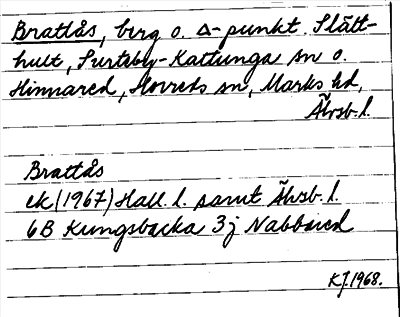 Brattås, berg o. Δ-punkt. Slätt-
hult, Surteby-Kattunga sn o.
Hinnared, Horreds sn, Marks hd,
Älvsb. l.
Brattås
ek (1967) Hall. l. samt Älvsb. l.
6B Kungsbacka 3j Nabbared
KJ. 1968.